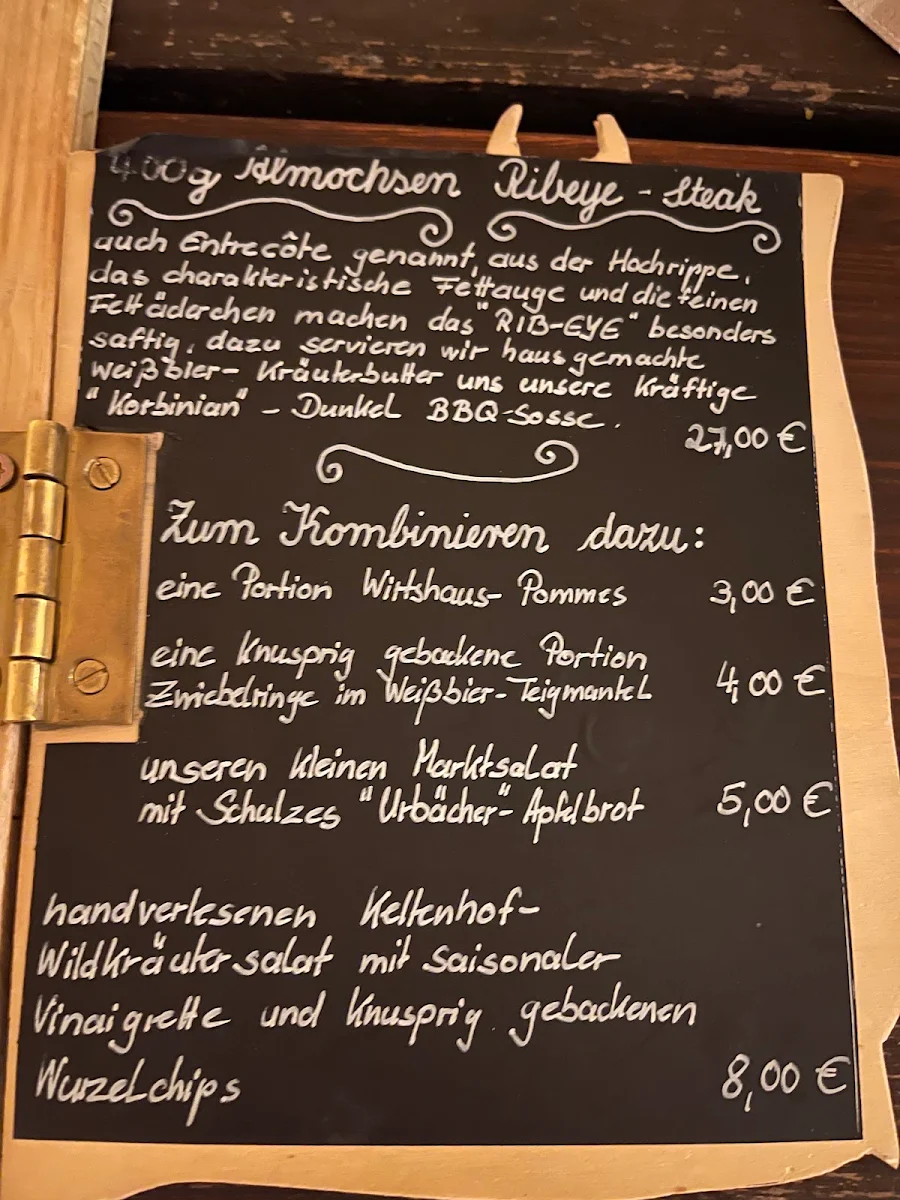 400g Almochsen Ribeye - Steak
auch Entrecôte genannt, aus der Hochrippe,
das charakteristische Fettauge und die feinen
Fettäderchen machen das "RIB-EYE" besonders
saftig, dazu servieren wir hausgemachte
Weißbier- Kräuterbutter uns unsere Kräftige
"Korbinian" - Dunkel BBQ-Sosse.
27,00 €
Zum Kombinieren dazu:
eine Portion Wirtshaus- Pommes 3,00 €
eine Knusprig gebackene Portion
Zwiebelringe im Weißbier-Teigmantel 4,00 €
unseren kleinen Marktsalat
mit Schulzes "Urbächer"- Apfelbrot 5,00 €
handverlesenen Keltenhof-
Wildkräutersalat mit saisonaler
Vinaigrette und Knusprig gebackenen
Wurzelchips 8,00 €